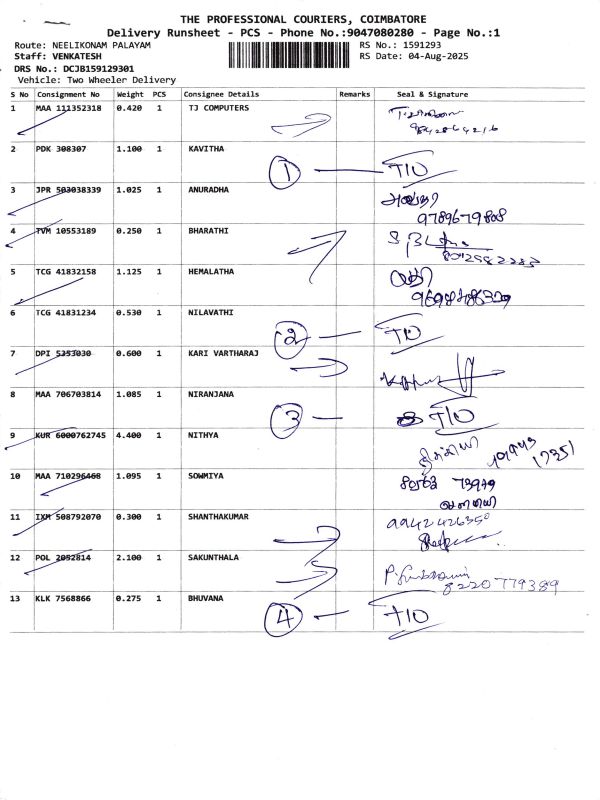 THE PROFESSIONAL COURIERS, COIMBATORE
Delivery Runsheet - PCS - Phone No.:9047080280 - Page No.:1
Route: NEELIKONAM PALAYAM RS No.: 1591293
Staff: VENKATESH RS Date: 04-Aug-2025
DRS No.: DCJB159129301
Vehicle: Two Wheeler Delivery
S No Consignment No Weight PCS Consignee Details Remarks Seal & Signature
1 MAA 111352318 0.420 1 TJ COMPUTERS
9842864216
2 PDK 308307 1.100 1 KAVITHA
1 — T/O
3 JPR 503038339 1.025 1 ANURADHA
9789679808
4 TVM 10553189 0.250 1 BHARATHI
5 TCG 41832158 1.125 1 HEMALATHA
6 TCG 41831234 0.530 1 NILAVATHI
2 — T/O
7 DPI 5353030 0.600 1 KARI VARTHARAJ
8 MAA 706703814 1.085 1 NIRANJANA
3 — T/O
9 KUR 6000762745 4.400 1 NITHYA
10 MAA 710296468 1.095 1 SOWMIYA
11 IXM 508792070 0.300 1 SHANTHAKUMAR
9942426350
12 POL 2052814 2.100 1 SAKUNTHALA
8220779389
13 KLK 7568866 0.275 1 BHUVANA
4 — T/O